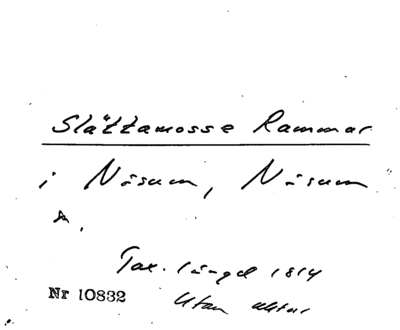 Slättamosse Rammar
i Näsum, Näsum
A.
Tax. längd 1814
Nr 10832 Utan aktnr